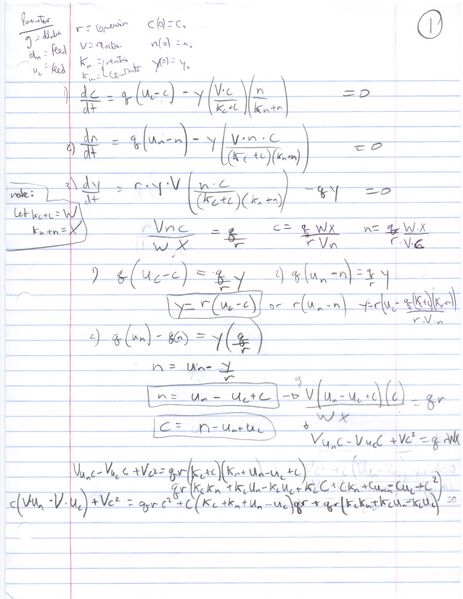 Parameter
g = dilution
u_n = feed
u_c = feed
r = conversion c(0) = c₀
V = n(0) = n₀
K_n = y(0) = y₀
K_m =
1
1) dc/dt = g(u_c - c) - y(V·c/(K_c+c))(n/(K_n+n)) = 0
2) dn/dt = g(u_n - n) - y(V·n·c/((K_c+c)(K_n+n))) = 0
3) dy/dt = r·y·V(n·c/((K_c+c)(K_n+n))) - gy = 0
note:
Let K_c+c = W
K_n+n = X
Vnc/W·X = g/r c = g WX/r Vn n = g W·X/r·V·c
1) g(u_c - c) = g/r y 2) g(u_n - n) = g/r y
y = r(u_c - c) or r(u_n - n) y = r(u_c - g(K_c+c)(K_n+n)/r·Vn)
2) g(u_n) - g(n) = y(g/r)
n = u_n - y/r
n = u_n - u_c + c → V(u_n - u_c + c)(c)/WX = gr
c = n - u_n + u_c
Vu_nc - Vu_cc + Vc² = grWX
Vu_nc - Vu_cc + Vc² = gr(K_c+c)(K_n+u_n-u_c+c)
gr(K_cK_n + K_cu_n - K_cu_c + K_cC + CK_n + Cu_n - Cu_c + C²)
c(Vu_n - V·u_c) + Vc² = grc² + c(K_c+K_n+u_n-u_c)gr + gr(K_cK_n+K_cu_n-K_cu_c)